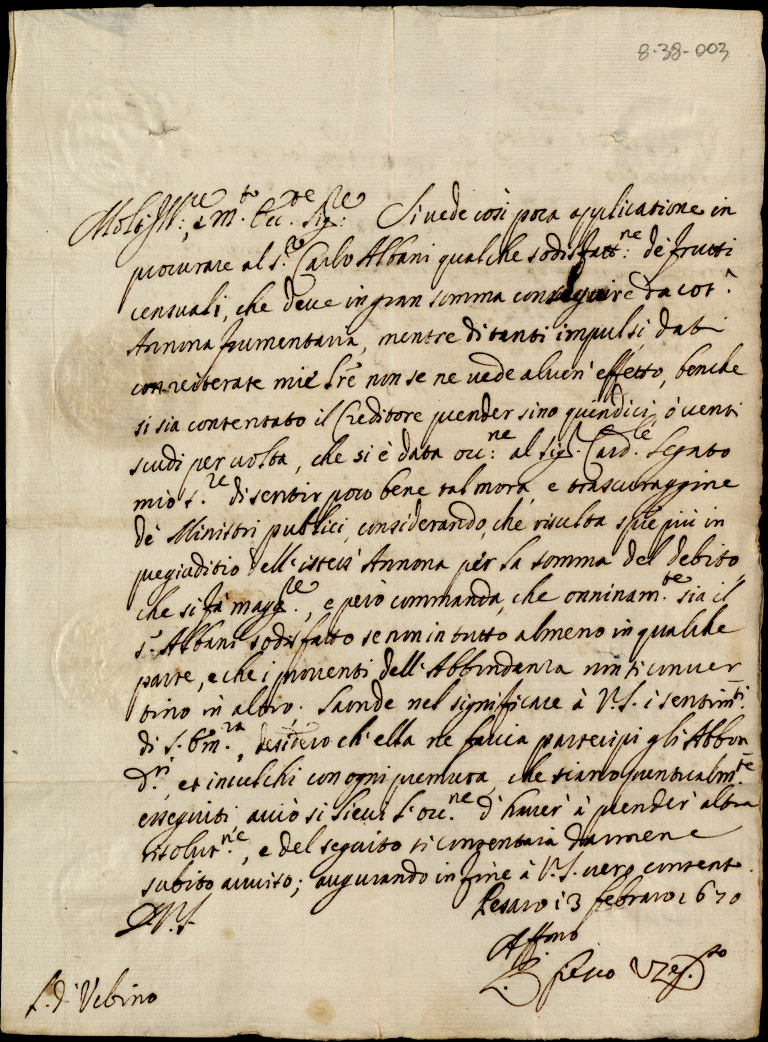 8-38-003
Molt' Ill.re, e m.to Ecc.te Sig.re Si vede così poca applicatione in
procurare al s.re Carlo Albani qualche sodisfatt.ne de frutti
censuali, che deve in gran somma conseguire da cot.a
Annona frumentaria, mentre di tanti impulsi dati
con reiterate mie lre non se ne vede alcun' effetto, benche
si sia contentato il Creditore prender sino quindici, ò venti
scudi per volta, che si è data occ.ne al sig.r Card.le Legato
mio s.re di sentir poco bene tal mora, e trascuraggine
de Ministri publici, considerando, che risulta spre più in
pregiuditio dell'istess' Annona per la somma del debito
che si fà magg.re, e però commanda, che onninam.te sia il
s.r Albani sodisfatto se non in tutto almeno in qualche
parte, e che i proventi dell'Abbondanza non si conver
tino in altro. Laonde nel significare à V.S. i sentim.ti
di S. Em.za, desidero ch'ella ne faccia partecipi gli Abbon
d.ri, et inculchi con ogni premura, che siano puntualm.te
esseguiti acciò si lievi l'occ.ne d'haver' à prender' altra
risolut.ne, e del seguito si contentarà darmene
subito avviso; augurando in fine à V.S. vero contento.
D V.S. Pesaro 13 febraro 1670
Aff.mo
V.leg.to
S. d' Urbino